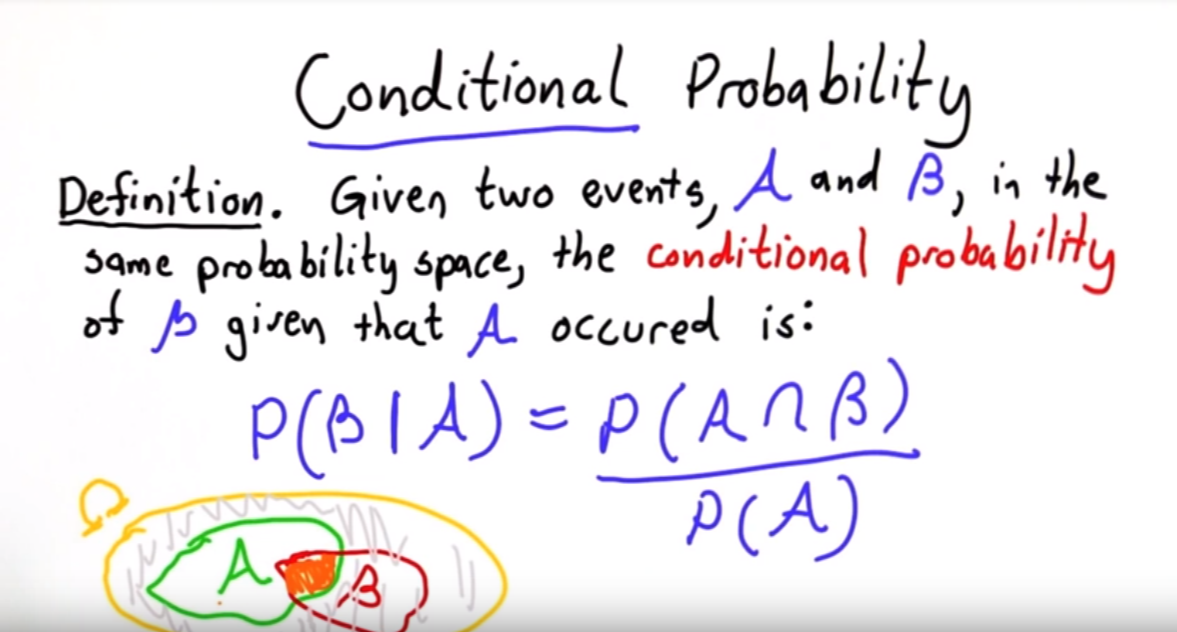 Conditional Probability
Definition. Given two events, A and B, in the
same probability space, the conditional probability
of B given that A occured is:
P(B|A) = P(A∩B)
P(A)
Ω
A
B